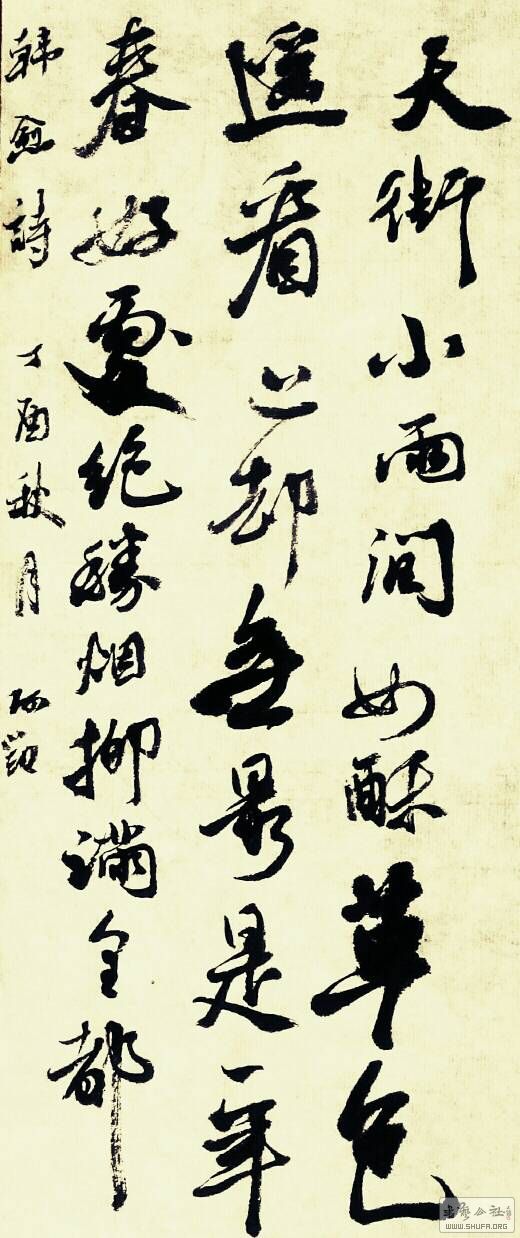 天街小雨润如酥草色
遥看近却無最是一年
春好處绝勝烟柳满皇都
韩愈詩 丁酉秋月
书艺公社
WWW.SHUFA.ORG